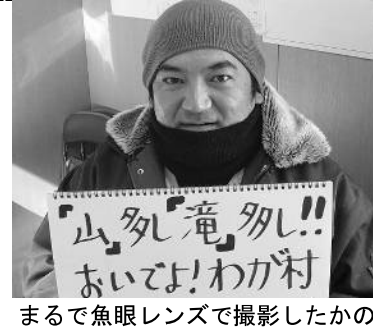 「山」多し「滝」多し!!
おいでよ!わが村
まるで魚眼レンズで撮影したかの